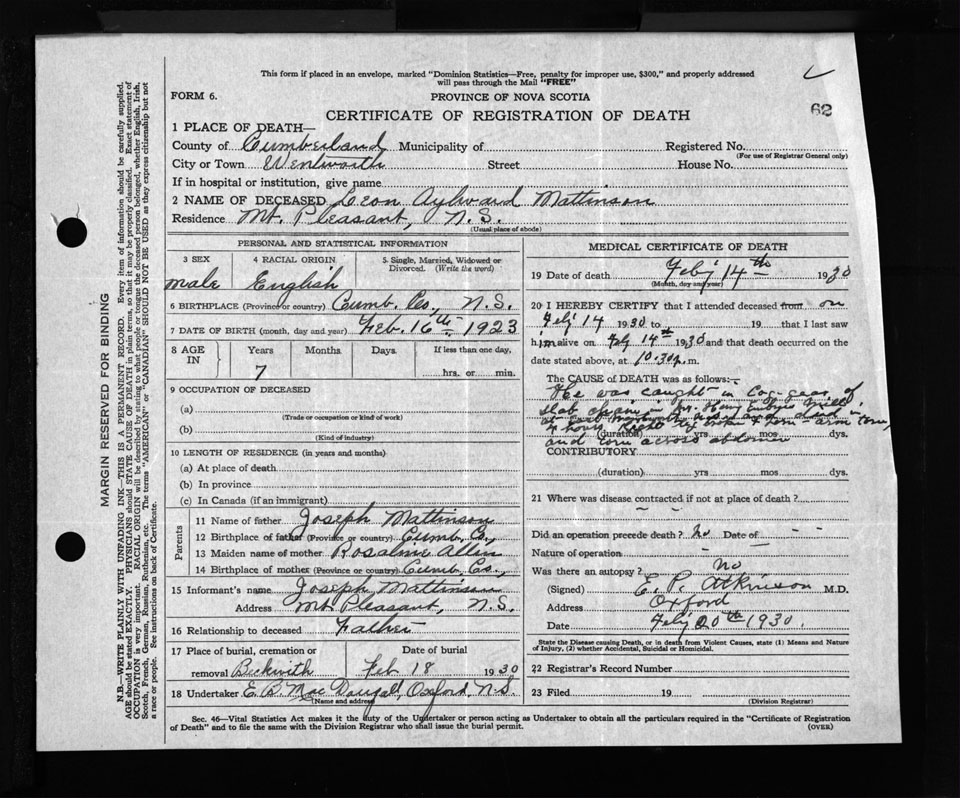 This form if placed in an envelope, marked "Dominion Statistics—Free, penalty for improper use, $300," and properly addressed
will pass through the Mail "FREE"
FORM 6.
PROVINCE OF NOVA SCOTIA
62
CERTIFICATE OF REGISTRATION OF DEATH
1 PLACE OF DEATH—
County of Cumberland Municipality of Registered No.
(For use of Registrar General only)
City or Town Wentworth Street House No.
If in hospital or institution, give name
2 NAME OF DECEASED Leon Aylward Mattinson
Residence Mt. Pleasant, N.S.
(Usual place of abode)
PERSONAL AND STATISTICAL INFORMATION
3 SEX 4 RACIAL ORIGIN 5 Single, Married, Widowed or
Divorced. (Write the word)
Male English
6 BIRTHPLACE (Province or country) Cumb. Co., N.S.
7 DATE OF BIRTH (month, day and year) Feb. 16th 1923
8 AGE IN Years Months Days If less than one day,
7 hrs. or min.
9 OCCUPATION OF DECEASED
(a)
(Trade or occupation or kind of work)
(b)
(Kind of industry)
10 LENGTH OF RESIDENCE (in years and months)
(a) At place of death
(b) In province
(c) In Canada (if an immigrant)
Parents
11 Name of father Joseph Mattinson
12 Birthplace of father (Province or country) Cumb. Co.,
13 Maiden name of mother Rosalmie Allin
14 Birthplace of mother (Province or country) Cumb. Co.,
15 Informant's name Joseph Mattinson
Address Mt. Pleasant, N.S.
16 Relationship to deceased Father
17 Place of burial, cremation or Date of burial
removal Beckwith Feb 18 1930
18 Undertaker E. B. MacDougall, Oxford, N.S.
(Name and address)
MEDICAL CERTIFICATE OF DEATH
19 Date of death Feby 14th 1930
(Month, day and year)
20 I HEREBY CERTIFY that I attended deceased from on
Feby 14 1930 to 19 that I last saw
him alive on Feby 14th 1930 and that death occurred on the
date stated above, at 10.30 p.m.
The CAUSE of DEATH was as follows:—
He was caught in Cog-gear of
slab chain in Mr. Harry
died in
hours Right leg broken & torn – arm torn,
(duration) yrs mos dys.
and torn across abdomen
CONTRIBUTORY
(duration) yrs mos dys.
21 Where was disease contracted if not at place of death?
Did an operation precede death? No Date of —
Nature of operation —
Was there an autopsy? No
(Signed) E. P. Atkinson M.D.
Address Oxford
Date Feby 20th 1930.
State the Disease causing Death, or in death from Violent Causes, state (1) Means and Nature
of Injury, (2) whether Accidental, Suicidal or Homicidal.
22 Registrar's Record Number
23 Filed 19
(Division Registrar)
Sec. 46—Vital Statistics Act makes it the duty of the Undertaker or person acting as Undertaker to obtain all the particulars required in the "Certificate of Registration
of Death" and to file the same with the Division Registrar who shall issue the burial permit.
(OVER)
MARGIN RESERVED FOR BINDING
N.B.—WRITE PLAINLY WITH UNFADING INK—THIS IS A PERMANENT RECORD. Every item of information should be carefully supplied.
AGE should be stated EXACTLY. PHYSICIANS should STATE CAUSE OF DEATH in plain terms, so that it may be properly classified. Exact statement of
OCCUPATION is very important. RACIAL ORIGIN will be described by stating to what people or tongue the deceased person belonged, whether English, Irish,
Scotch, French, German, Russian, Ruthenian, etc. The terms "AMERICAN" or "CANADIAN" SHOULD NOT BE USED as they express citizenship but not
a race or people. See instructions on back of Certificate.